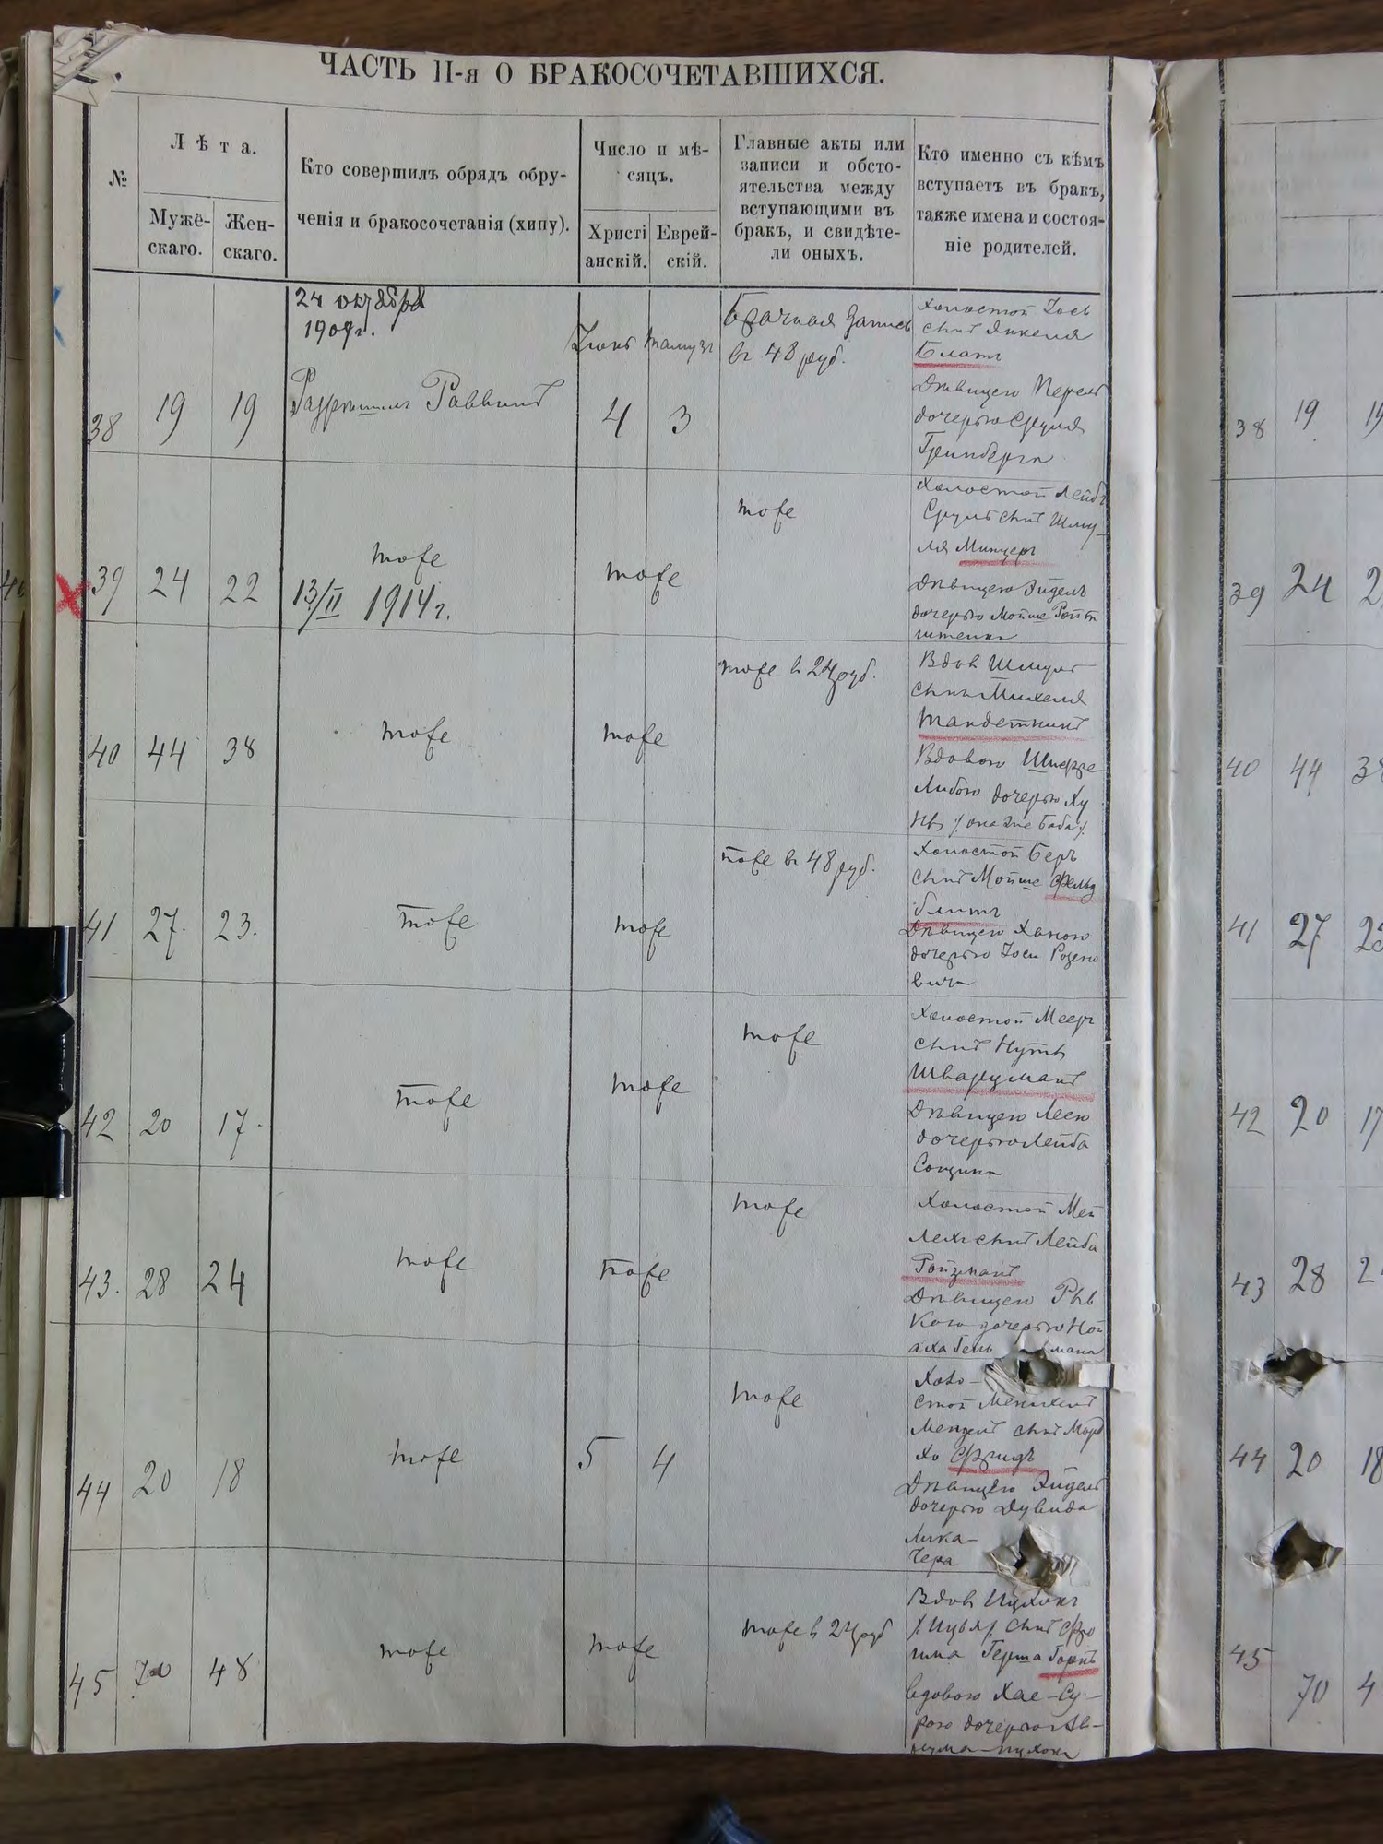 ЧАСТЬ II-я О БРАКОСОЧЕТАВШИХСЯ.
№
Лѣта.
Муже-
скаго.
Жен-
скаго.
Кто совершилъ обрядъ обру-
ченія и бракосочетанія (хипу).
Число и мѣ-
сяцъ.
Христі
анскій.
Еврей-
скій.
Главные акты или
записи и обсто-
ятельства между
вступающими въ
бракъ, и свидѣте-
ли оныхъ.
Кто именно съ кѣмъ
вступаетъ въ бракъ,
также имена и состоя-
ніе родителей.
38
19
19
24 октября
1907г.
Раввинъ
Іюнь
Тамузъ
4
3
Брачная запись
въ 48 руб.
Холостой Іось
сынъ Янкеля
Блатъ
Дѣвицею Перель
дочерью Сруля
Гринберга
39
24
22
тоже
13/II 1914г.
тоже
тоже
Холостой Лейбъ
Сруль сынъ Шму-
ля Минцеръ
Дѣвицею Эйдель
дочерью Мойше
40
44
38
тоже
тоже
тоже в 24 руб.
Вдов Шмуль
сынъ Михеля
Вдовою Шифре
Либою дочерью Ху
41
27
23.
тоже
тоже
тоже въ 48 руб.
Холостой Беръ
сынъ Мойше Фельд
блитъ
Дѣвицею Ханою
дочерью Іоси Розено
вича
42
20
17
тоже
тоже
тоже
Холостой Мееръ
сынъ Нутъ
Шварцманъ
Дѣвицею Лесю
дочерью Лейба
43.
28
24
тоже
тоже
тоже
Холостой Мей
лехъ сынъ Лейба
Гойзманъ
Дѣвицею Рыв
кою дочерью
44
20
18
тоже
5
4
тоже
Холо-
стой
Мендель сынъ Морд
ко Фридъ
Дѣвицею Эйдель
дочерью Дувида
Лика-
чера
45
70
48
тоже
тоже
тоже в 24 руб
Вдов Ицхокъ
сынъ Фро
има Герша Горнъ
вдовою Хае-Су-
рою дочерью Ав-
рума-Ицхока
38
19
39
24
40
44
41
27
42
20
17
43
28
44
20
18
45
70